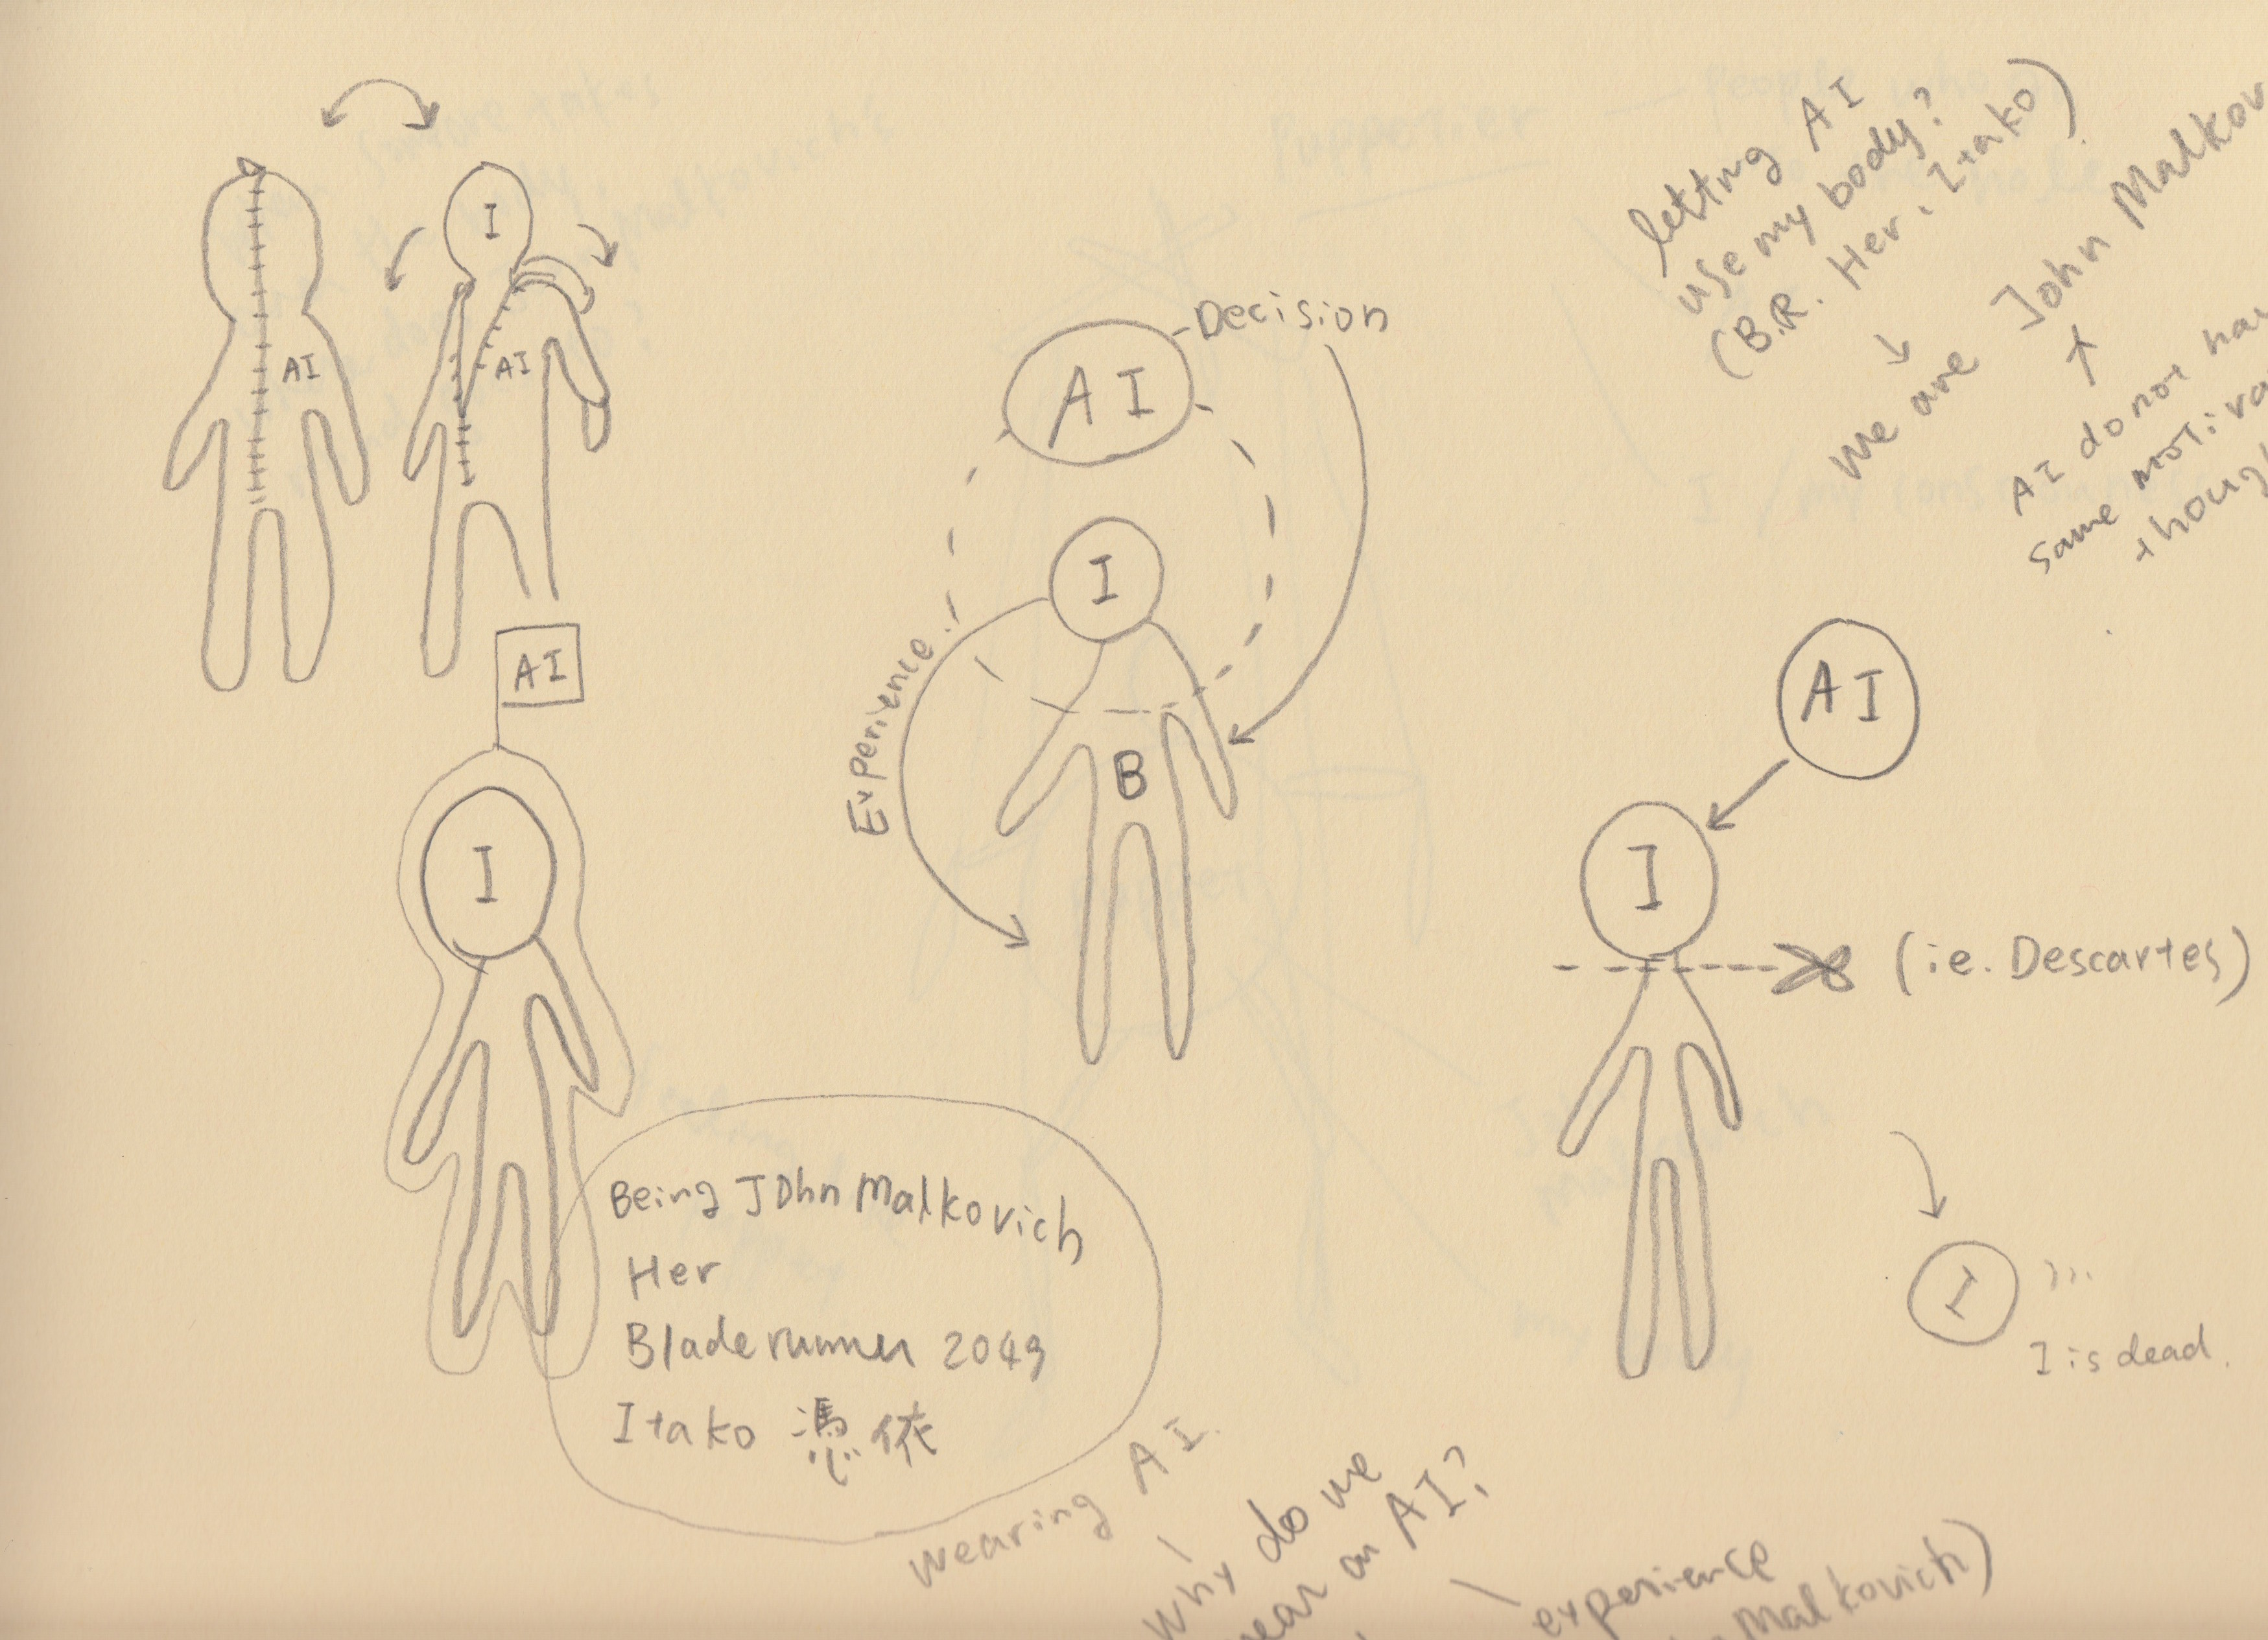 I
AI
AI
AI
I
Being John Malkovich
Her
Bladerunner 2049
Itako 憑依
Decision
AI
I
Experience
B
letting AI
use my body?
(B.R. Her, Itako)
we are John Malkov
AI do not hav
same motiva
thoug
AI
I
(ie. Descartes)
I
I is dead.
wearing AI.
why do we
wear an AI?
experience
Malkovich)